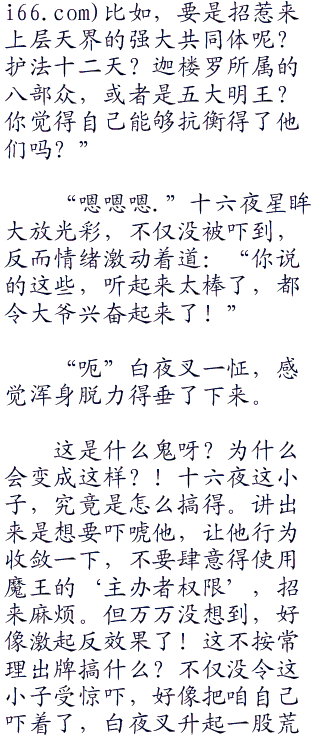 i66.com)比如，要是招惹来
上层天界的强大共同体呢？
护法十二天？迦楼罗所属的
八部众，或者是五大明王？
你觉得自己能够抗衡得了他
们吗？”
“嗯嗯嗯.”十六夜星眸
大放光彩，不仅没被吓到，
反而情绪激动着道：“你说
的这些，听起来太棒了，都
令大爷兴奋起来了！”
“呃”白夜叉一怔，感
觉浑身脱力得垂了下来。
这是什么鬼呀？为什么
会变成这样？！十六夜这小
子，究竟是怎么搞得。讲出
来是想要吓唬他，让他行为
收敛一下，不要肆意得使用
魔王的‘主办者权限’，招
来麻烦。但万万没想到，好
像激起反效果了！这不按常
理出牌搞什么？不仅没令这
小子受惊吓，好像把咱自己
吓着了，白夜叉升起一股荒